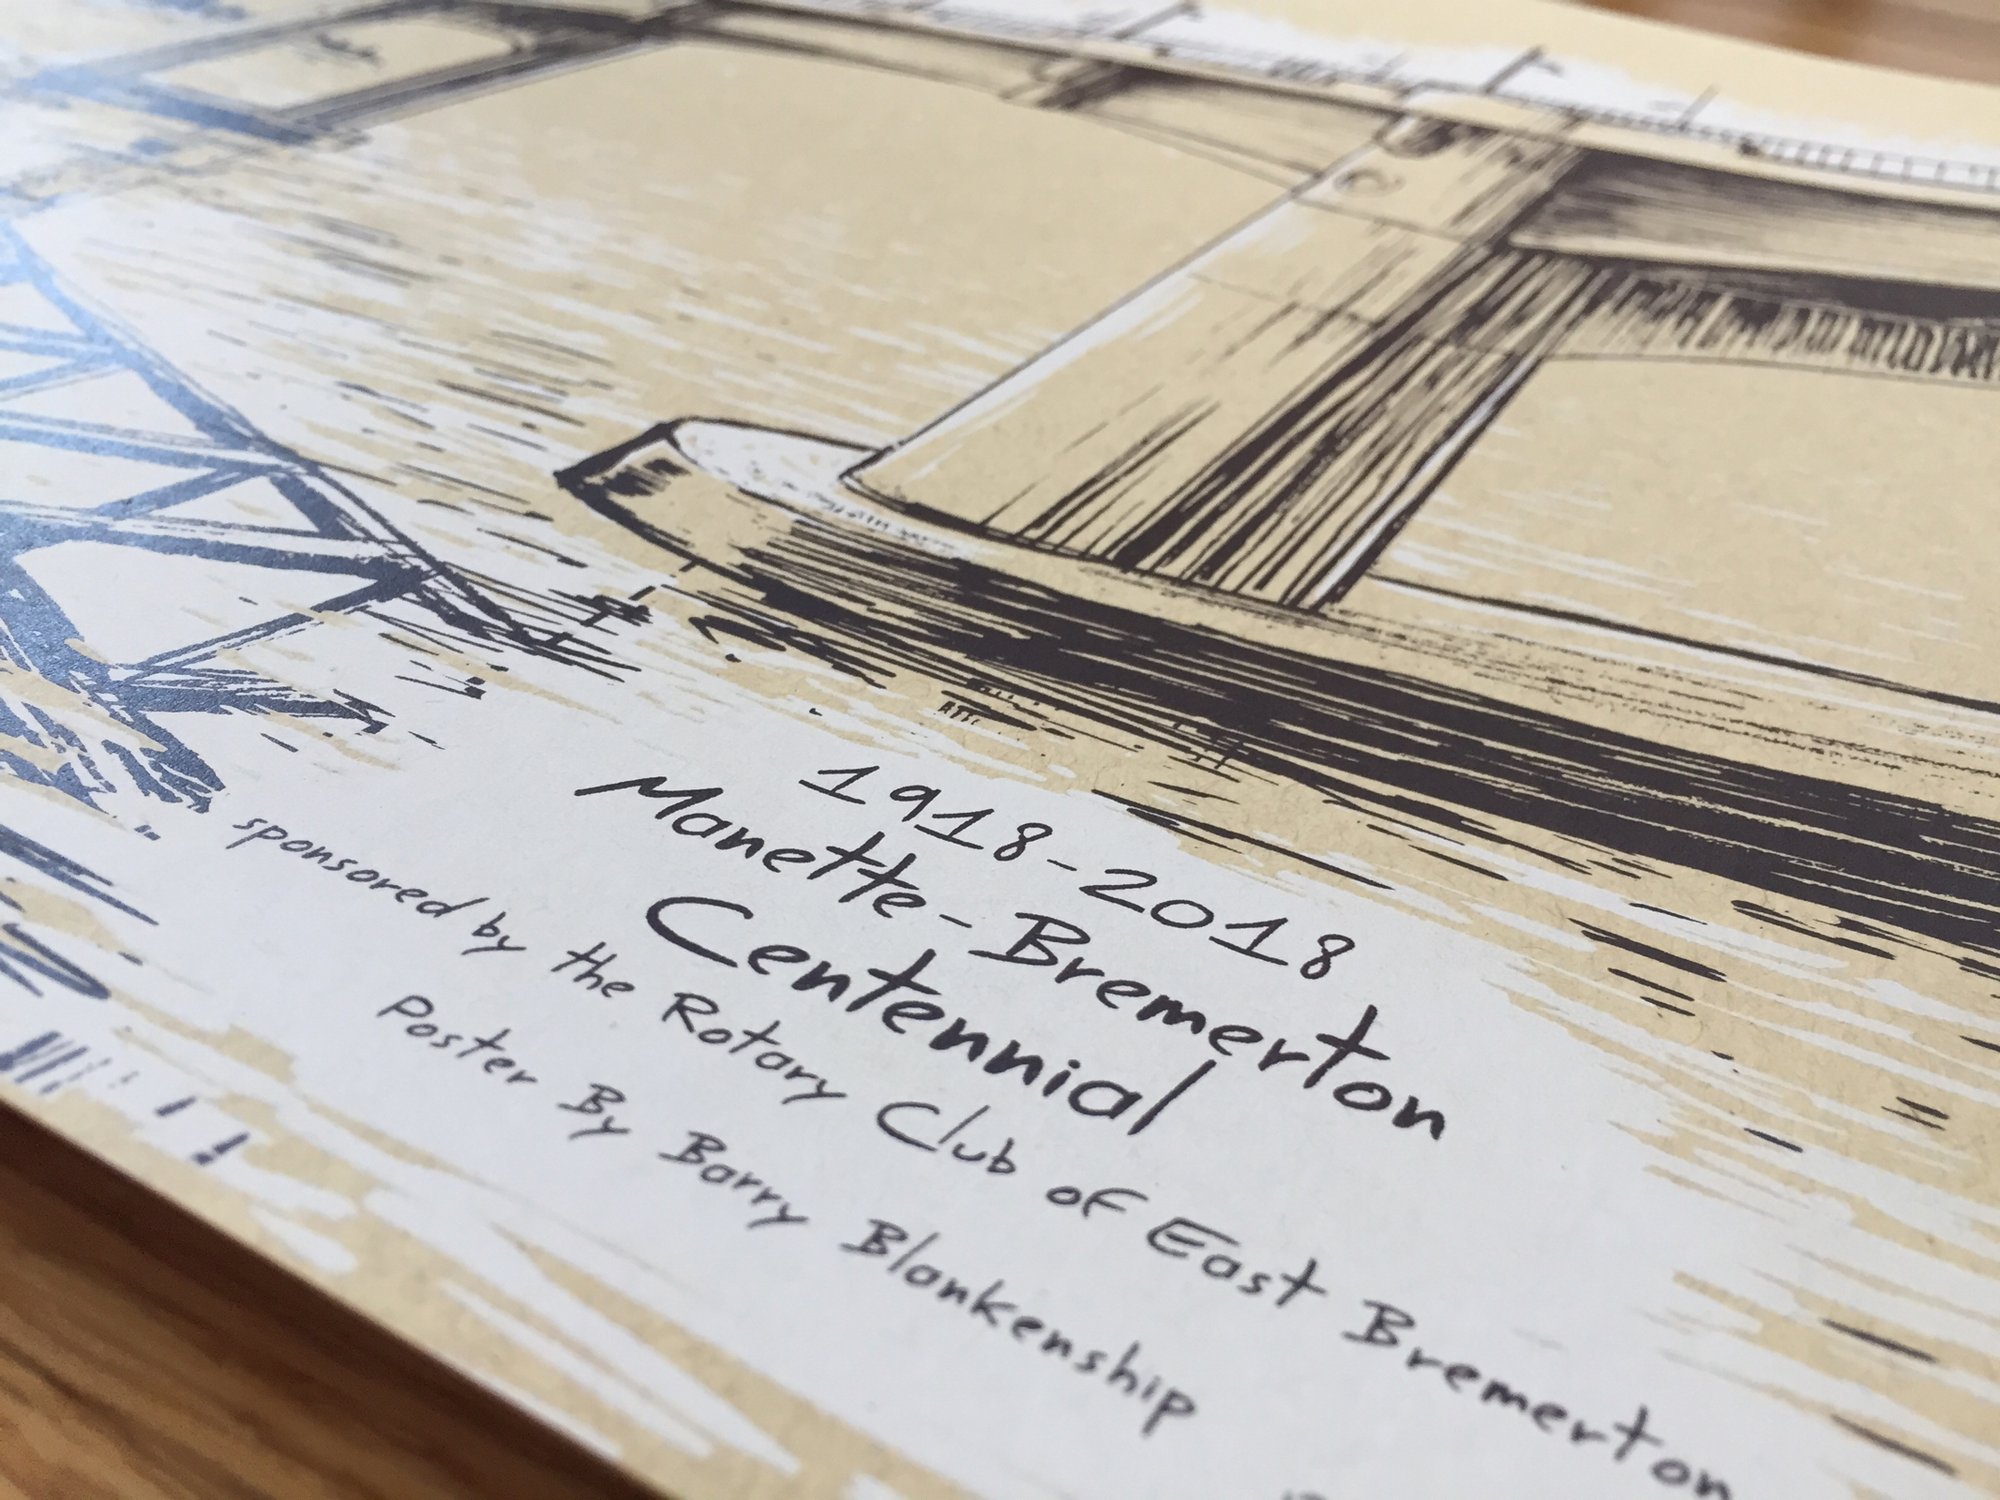 1918-2018
Manette-Bremerton
Centennial
sponsored by the Rotary Club of East Bremerton
Poster By Barry Blankenship